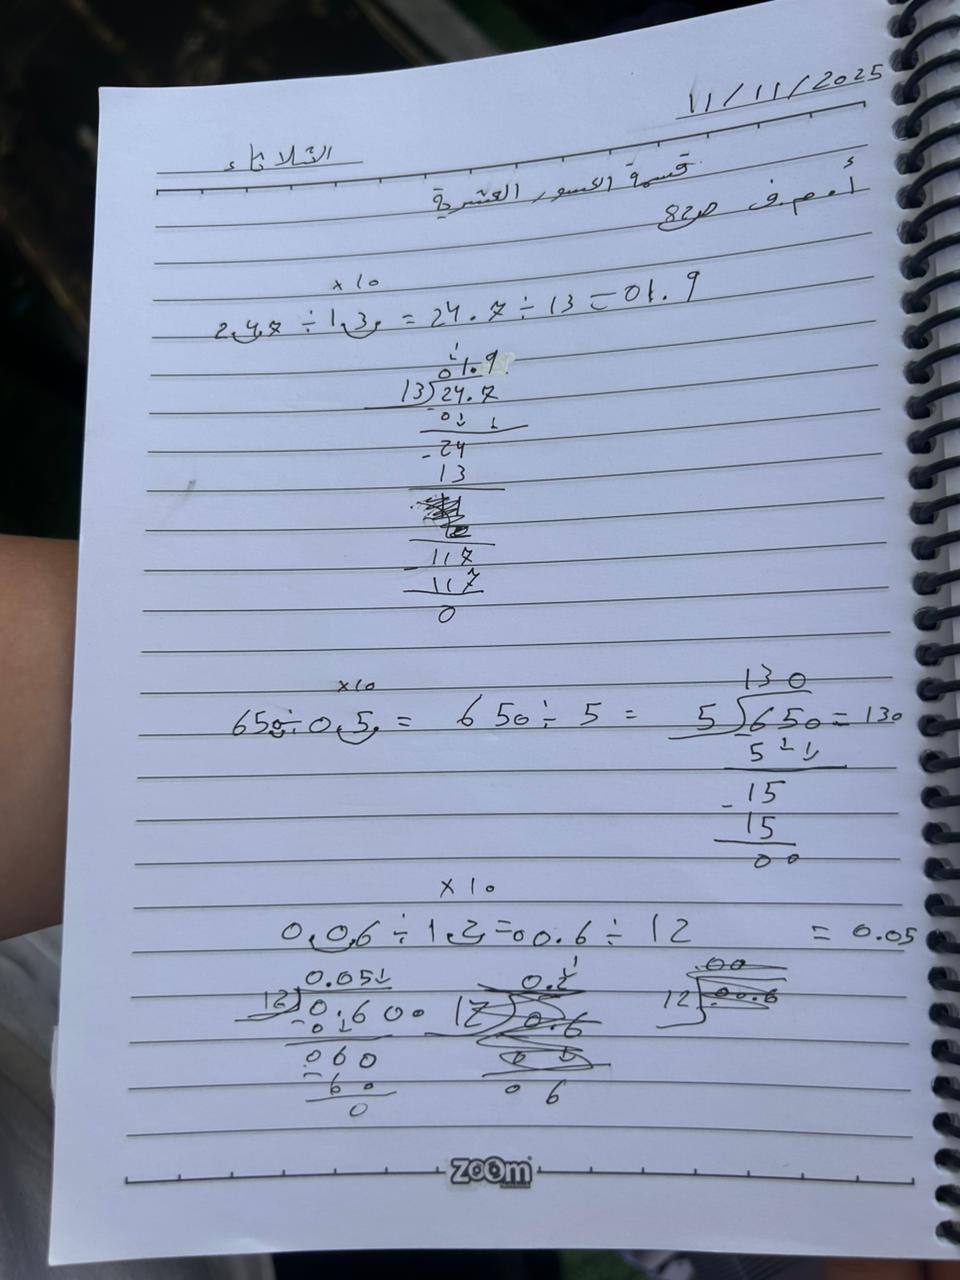 11/11/2025
الثلاثاء
قسمة الكسور العشرية
أ. صف ص82
×10
2.47 ÷ 1.3 = 24.7 ÷ 13 = 01.9
01.9
13)24.7
0
- 24
13
- 117
117
0
×10
650 ÷ 0.5 = 650 ÷ 5 = 5)650 = 130
130
5
- 15
15
00
×10
0.06 ÷ 1.2 = 00.6 ÷ 12 = 0.05
0.05
12)0.600
- 0
060
- 60
0
0.
12)0.6
0 0
0 6
.00
12)00.6
ZOOM